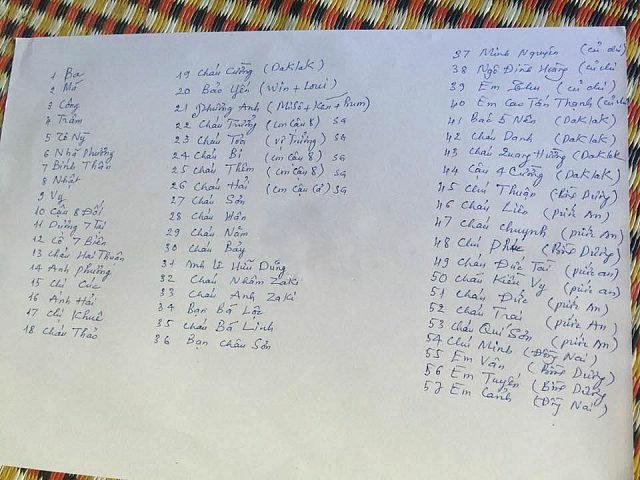 1 Ba
2 Má
3 Công
4 Trâm
5 Tố Nữ
6 Nhã Phương
7 Bình Thân
8 Nhật
9 Vy
10 Cậu 8 Đối
11 Dượng 7 Tài
12 Cô 7 Biên
13 Cháu Hai Thuần
14 Anh Phương
15 Chị Cúc
16 Anh Hải
17 Chị Khuê
18 Cháu Thảo
19 Cháu Cường (DakLak)
20 Bảo Yến (Win + Loui)
21 Phương Anh (Miso + Ken + Pum)
22 Cháu Trưởng (Cm Cậu 8) SG
23 Cháu Tới (vợ Trưởng) SG
24 Cháu Bi (Cm Cậu 8) SG
25 Cháu Thêm (Cm Cậu 8) SG
26 Cháu Hải (Cm Cậu 8) SG
27 Cháu Sơn
28 Cháu Hân
29 Cháu Năm
30 Cháu Bảy
31 Anh Lê Hữu Dũng
32 Cháu Nhâm Zaki
33 Cháu Anh Zaki
34 Bạn Bá Lộc
35 Cháu Bá Linh
36 Bạn Châu Sơn
37 Minh Nguyên (củ chi)
38 Ngô Đình Hoàng (củ chi)
39 Em (củ chi)
40 Em Cao Tấn Thạnh (củ chi)
41 Bác 5 Nên (DakLak)
42 Cháu Danh (DakLak)
43 Cháu Quang Hương (DakLak
44 Cậu 4 Cường (DakLak)
45 Chú Thuận (Bình Dương)
46 Cháu Liêu (phước An)
47 Cháu Chuynh (phước An)
48 Chú Phúc (Bình Dương)
49 Cháu Đức Tài (phước an)
50 Cháu Kiều Vy (phước an)
51 Cháu Đức (phước An)
52 Cháu Trai (phước An)
53 Cháu Quí Sơn (phước An)
54 Chú Minh (Đồng Nai)
55 Em Vân (Bình Dương)
56 Em Tuyến (Bình Dương)
57 Em Cảnh (Đồng Nai)